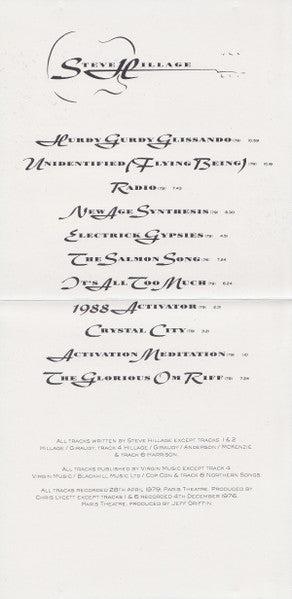 Steve Hillage
Hurdy Gurdy Glissando (79) 10.59
Unidentified (Flying Being) (79) 10.19
Radio (79) 7.43
New Age Synthesis (79) 8.30
Electrick Gypsies (79) 4.51
The Salmon Song (76) 7.24
It's All Too Much (76) 6.24
1988 Activator (79) 2.31
Crystal City (79) 3.21
Activation Meditation (79) 1.0
The Glorious Om Riff (79) 7.24
All tracks written by Steve Hillage except tracks 1 & 2
Hillage / Giraudy, track 4 Hillage / Giraudy / Anderson / McKenzie
& track 6 Harrison.
All tracks published by Virgin Music except track 4
Virgin Music / Blackhill Music Ltd / Cop Con & track 6 Northern Songs.
All tracks recorded 28th April 1979, Paris Theatre. Produced by
Chris Lycett except tracks 1 & 6 recorded 4th December 1976,
Paris Theatre, produced by Jeff Griffin.